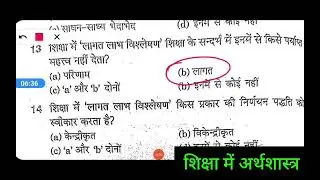 (c) साधन-साध्य भेदाभेद (d) इनमें से कोई नहीं
13 शिक्षा में 'लागत लाभ विश्लेषण' शिक्षा के सन्दर्भ में इनमें से किसे पर्याप्त
महत्त्व नहीं देता?
(a) परिणाम (b) लागत
(c) 'a' और 'b' दोनों (d) इनमें से कोई नहीं
14 शिक्षा में 'लागत लाभ विश्लेषण' किस प्रकार की निर्णयन पद्धति को
स्वीकार करता है?
(a) केन्द्रीकृत (b) विकेन्द्रीकृत
(c) 'a' और 'b' दोनों
06:36
शिक्षा में अर्थशास्त्र